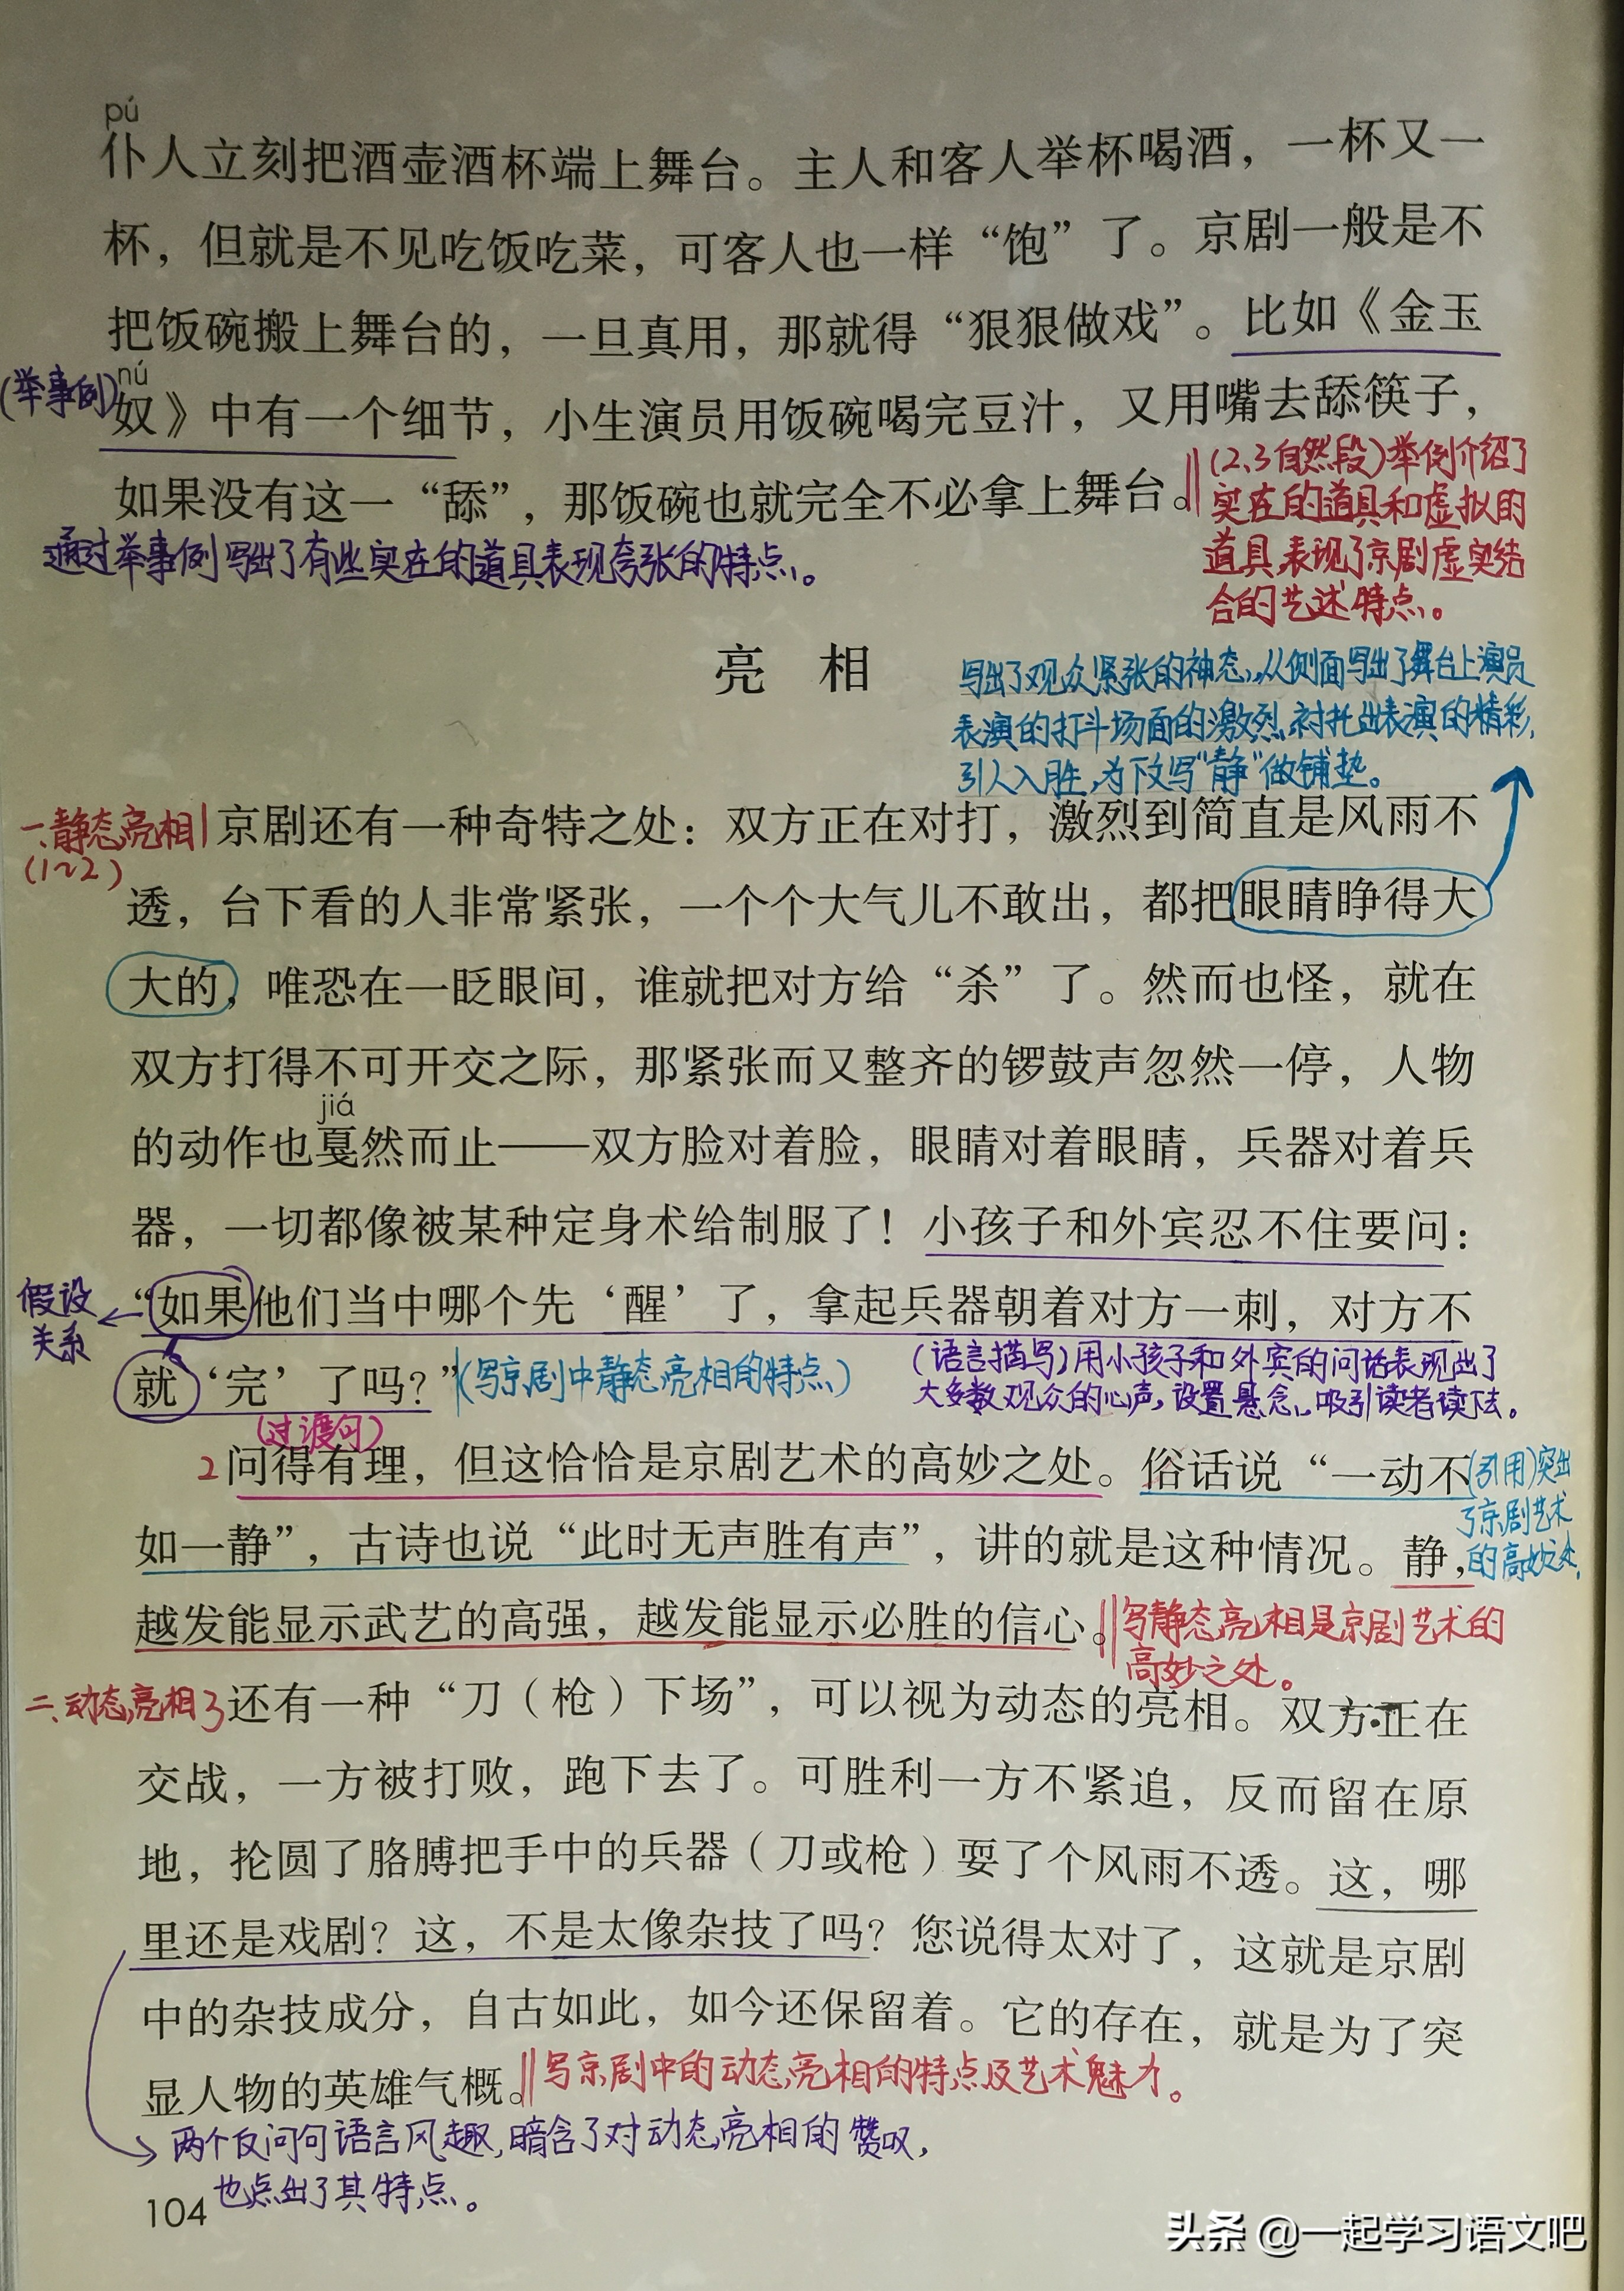 pú
仆人立刻把酒壶酒杯端上舞台。主人和客人举杯喝酒，一杯又一
杯，但就是不见吃饭吃菜，可客人也一样“饱”了。京剧一般是不
把饭碗搬上舞台的，一旦真用，那就得“狠狠做戏”。比如《金玉
nú
(举事例)
奴》中有一个细节，小生演员用饭碗喝完豆汁，又用嘴去舔筷子，
如果没有这一“舔”，那饭碗也就完全不必拿上舞台。
(2、3自然段)举例介绍了
实在的道具和虚拟的
道具,表现了京剧虚实结
合的艺术特点。
通过举事例写出了有些实在的道具表现夸张的特点。
亮 相
写出了观众紧张的神态,从侧面写出了舞台上演员
表演的打斗场面的激烈,衬托出表演的精彩,
引人入胜,为下文写“静”做铺垫。
一、静态亮相
(1~2)
京剧还有一种奇特之处：双方正在对打，激烈到简直是风雨不
透，台下看的人非常紧张，一个个大气儿不敢出，都把眼睛睁得大
大的，唯恐在一眨眼间，谁就把对方给“杀”了。然而也怪，就在
双方打得不可开交之际，那紧张而又整齐的锣鼓声忽然一停，人物
jiá
的动作也戛然而止——双方脸对着脸，眼睛对着眼睛，兵器对着兵
器，一切都像被某种定身术给制服了！小孩子和外宾忍不住要问：
假设
关系
“如果他们当中哪个先‘醒’了，拿起兵器朝着对方一刺，对方不
就‘完’了吗？”
(写京剧中静态亮相的特点)
(语言描写)用小孩子和外宾的问话表现出了
大多数观众的心声,设置悬念,吸引读者读下去。
(过渡句)
2问得有理，但这恰恰是京剧艺术的高妙之处。俗话说“一动不
如一静”，古诗也说“此时无声胜有声”，讲的就是这种情况。静，
(引用)突出
了京剧艺术
的高妙之处,
越发能显示武艺的高强，越发能显示必胜的信心。
写静态亮相是京剧艺术的
高妙之处。
二、动态亮相3
还有一种“刀（枪）下场”，可以视为动态的亮相。双方正在
交战，一方被打败，跑下去了。可胜利一方不紧追，反而留在原
地，抡圆了胳膊把手中的兵器（刀或枪）耍了个风雨不透。这，哪
里还是戏剧？这，不是太像杂技了吗？您说得太对了，这就是京剧
中的杂技成分，自古如此，如今还保留着。它的存在，就是为了突
显人物的英雄气概。
写京剧中的动态亮相的特点及艺术魅力。
两个反问句语言风趣,暗含了对动态亮相的赞叹,
也点出了其特点。
104
头条 @一起学习语文吧